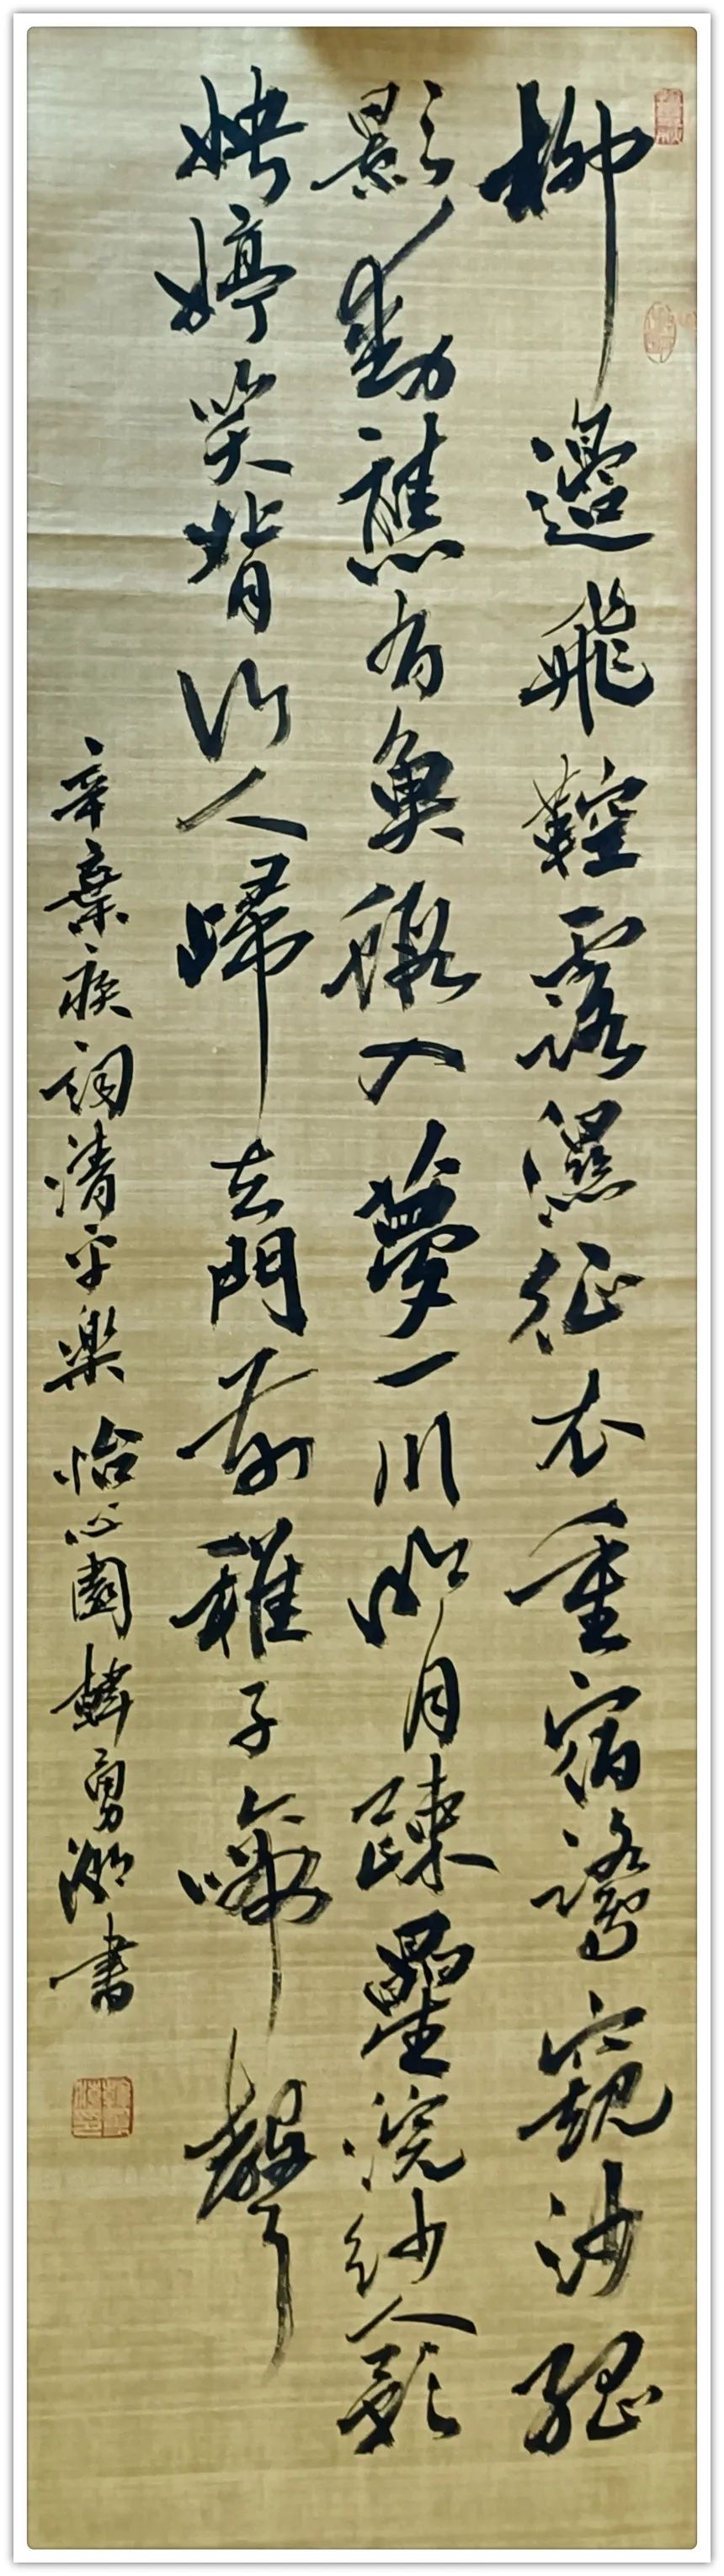 柳邊飛鞚露濕征衣重宿鷺窺沙孤
影動應有魚蝦入夢一川明月疎曐浣紗人影
娉婷笑背行人歸去門前稚子啼聲
辛棄疾詞清平楽 怡心園韓勇書